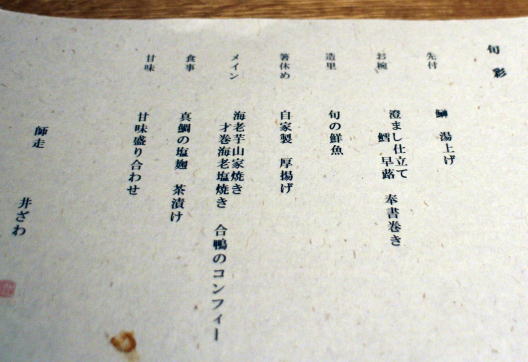 旬彩
先付
湯上げ
お椀
澄まし仕立て
鱈 早蕗 奉書巻き
造里
旬の鮮魚
箸休め
自家製 厚揚げ
メイン
海老芋山家焼き
才巻海老塩焼き 合鴨のコンフィー
食事
真鯛の塩麹 茶漬け
甘味
甘味盛り合わせ
師走
井ざわ